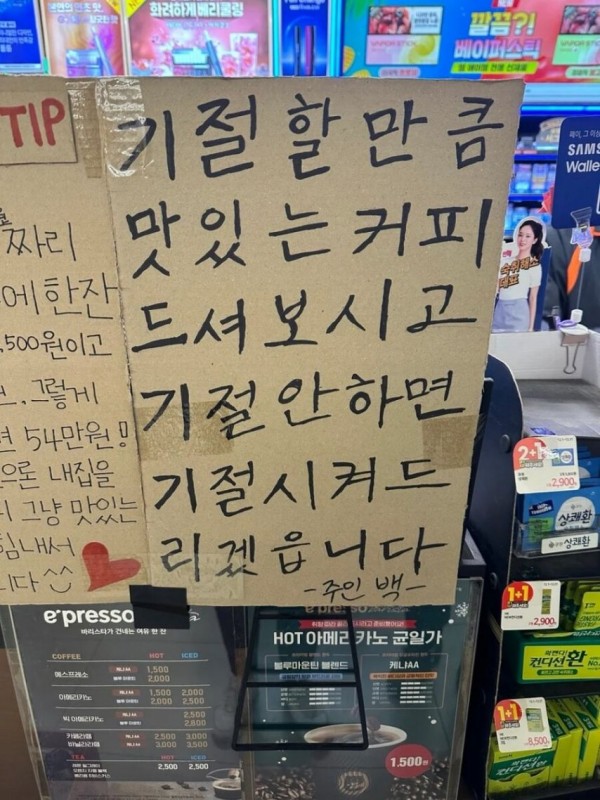 화려하게베리쿨링
깔끔?!
베이퍼스틱
TIP
기절할만큼
맛있는커피
드셔보시고
기절안하면
기절시켜드
리겠읍니다
-주인 백-
짜리
에한잔
,500원이고
그렇게
면 54만원!
으론 내집을
그냥 맛있는
힘내서
니다
SAMS
Walle
2+1
2,900
상쾌환
상쾌환
1+1
2,900
컨디션환
1+1
8,500
e*presso
바리스타가 건네는 여유 한 잔
COFFEE HOT ICED
에스프레소 1,500
2,000
아메리카노 1,500 2,000
2,000 2,500
빅 아메리카노 2,500
2,800
카페라떼 2,500 3,000
바닐라라떼 3,000 3,500
TEA HOT ICED
2,500 2,500
HOT 아메리카노 균일가
블루마운틴 블렌드 케냐AA
1,500원